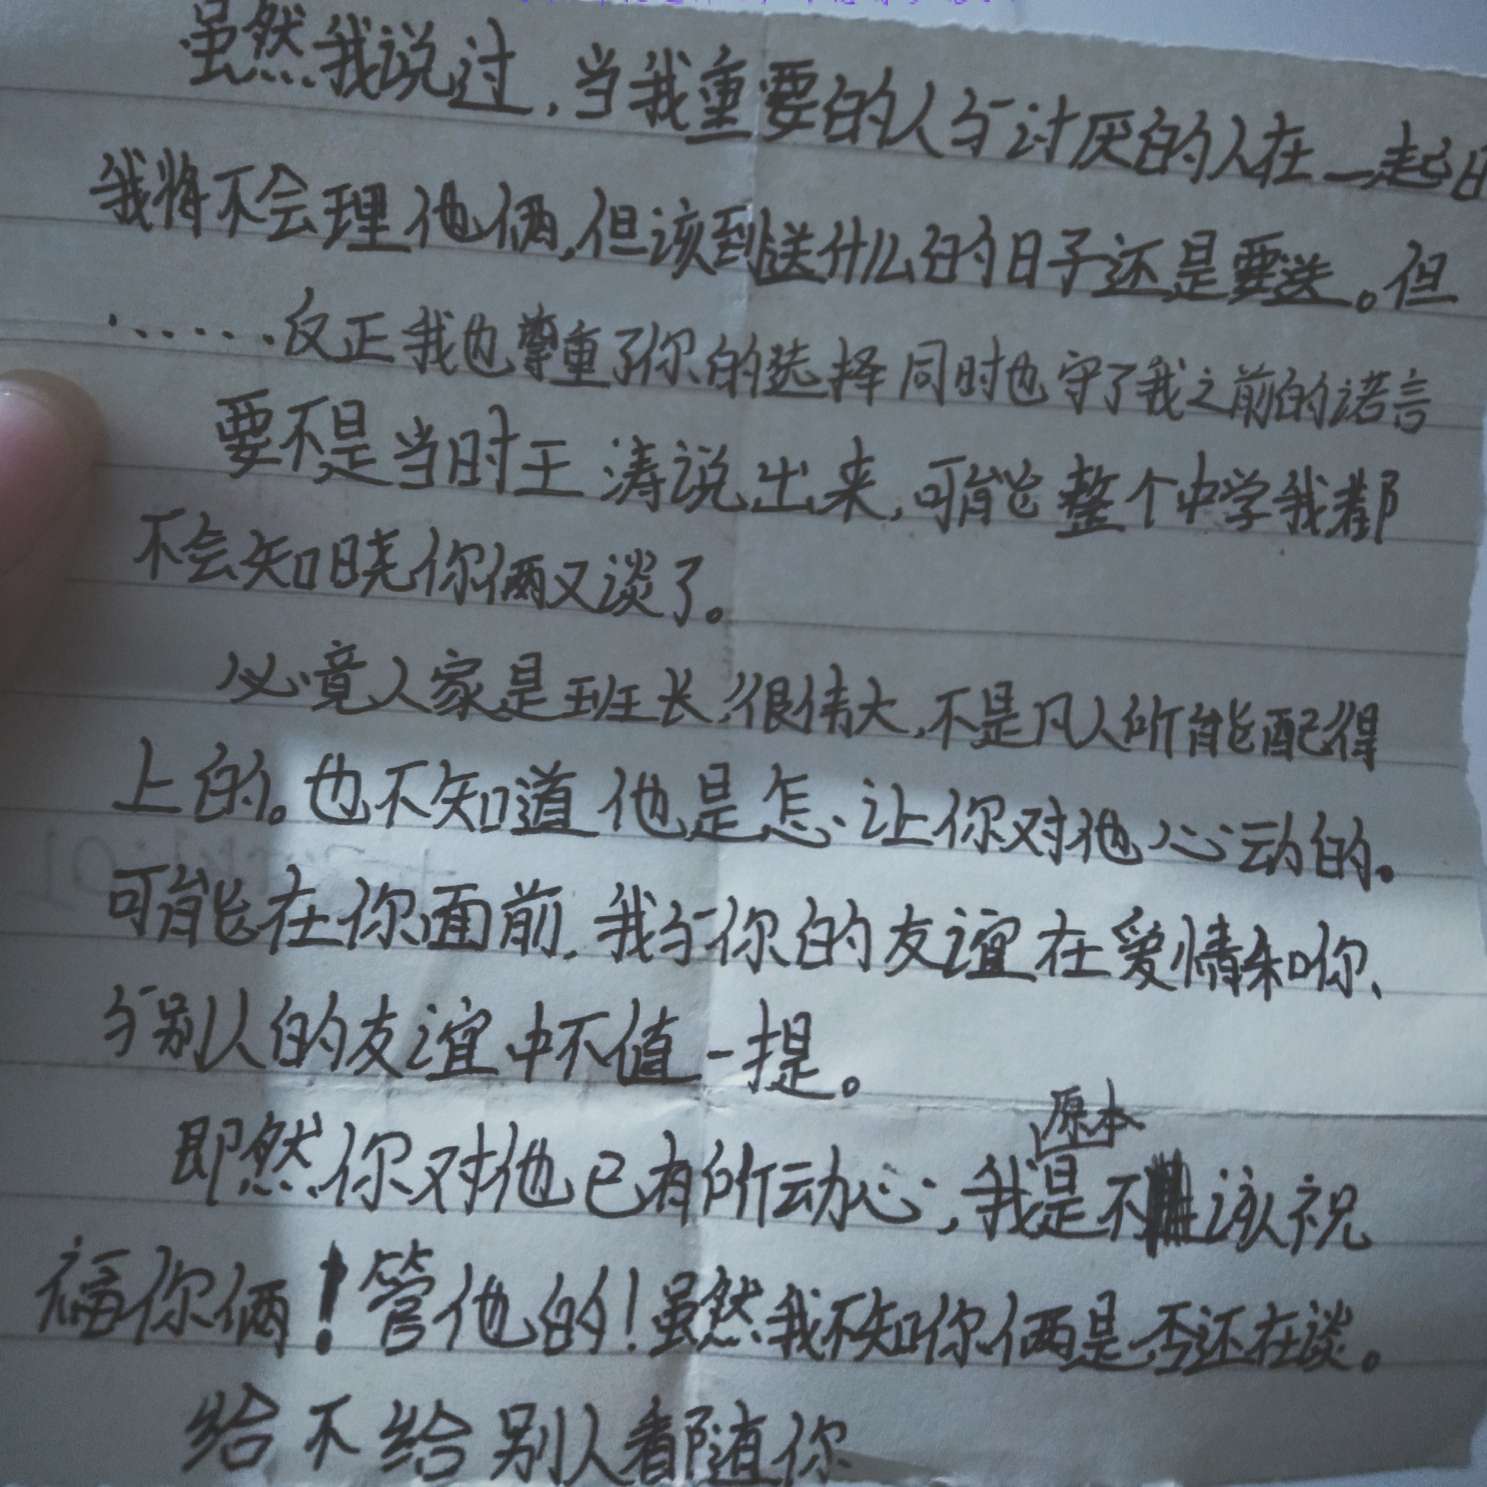 虽然我说过,当我重要的人与讨厌的人在一起时
我将不会理他俩,但该到送什么的日子还是要送。但
......反正我也尊重了你的选择同时也守了我之前的诺言
要不是当时王涛说出来,可能整个中学我都
不会知晓你俩又谈了。
必竟人家是班长,很伟大,不是凡人所能配得
上的。也不知道他是怎、让你对他心动的。
可能在你面前,我与你的友谊在爱情和你、
与别人的友谊中不值一提。
原本
即然你对他已有所动心,我是不该祝
福你俩!管他的!虽然我不知你俩是否还在谈。
给不给别人看都随你